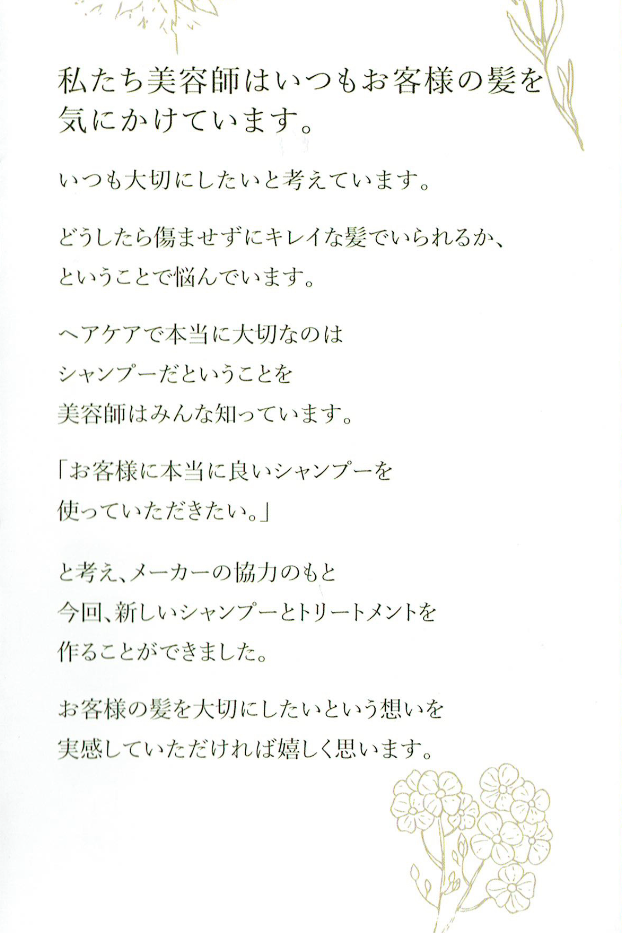 私たち美容師はいつもお客様の髪を
気にかけています。
いつも大切にしたいと考えています。
どうしたら傷ませずにキレイな髪でいられるか、
ということで悩んでいます。
ヘアケアで本当に大切なのは
シャンプーだということを
美容師はみんな知っています。
「お客様に本当に良いシャンプーを
使っていただきたい。」
と考え、メーカーの協力のもと
今回、新しいシャンプーとトリートメントを
作ることができました。
お客様の髪を大切にしたいという想いを
実感していただければ嬉しく思います。